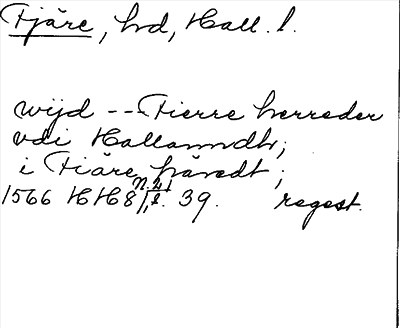 Fjäre, hd, Hall. l.
wijd --- Fierre herreder
vdi Hallanndh;
i Fiäre häredt;
1566 HH8 39. regest.